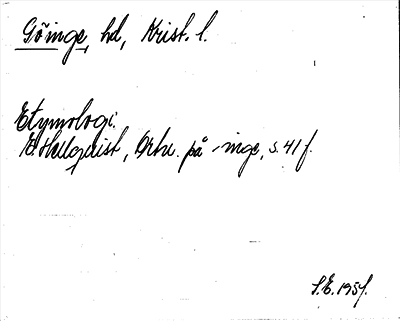 Göinge, hd, Krist. l.
Etymologi.
E. Hellquist, Ortn. på -inge, s. 41 f.
S.E. 1954.